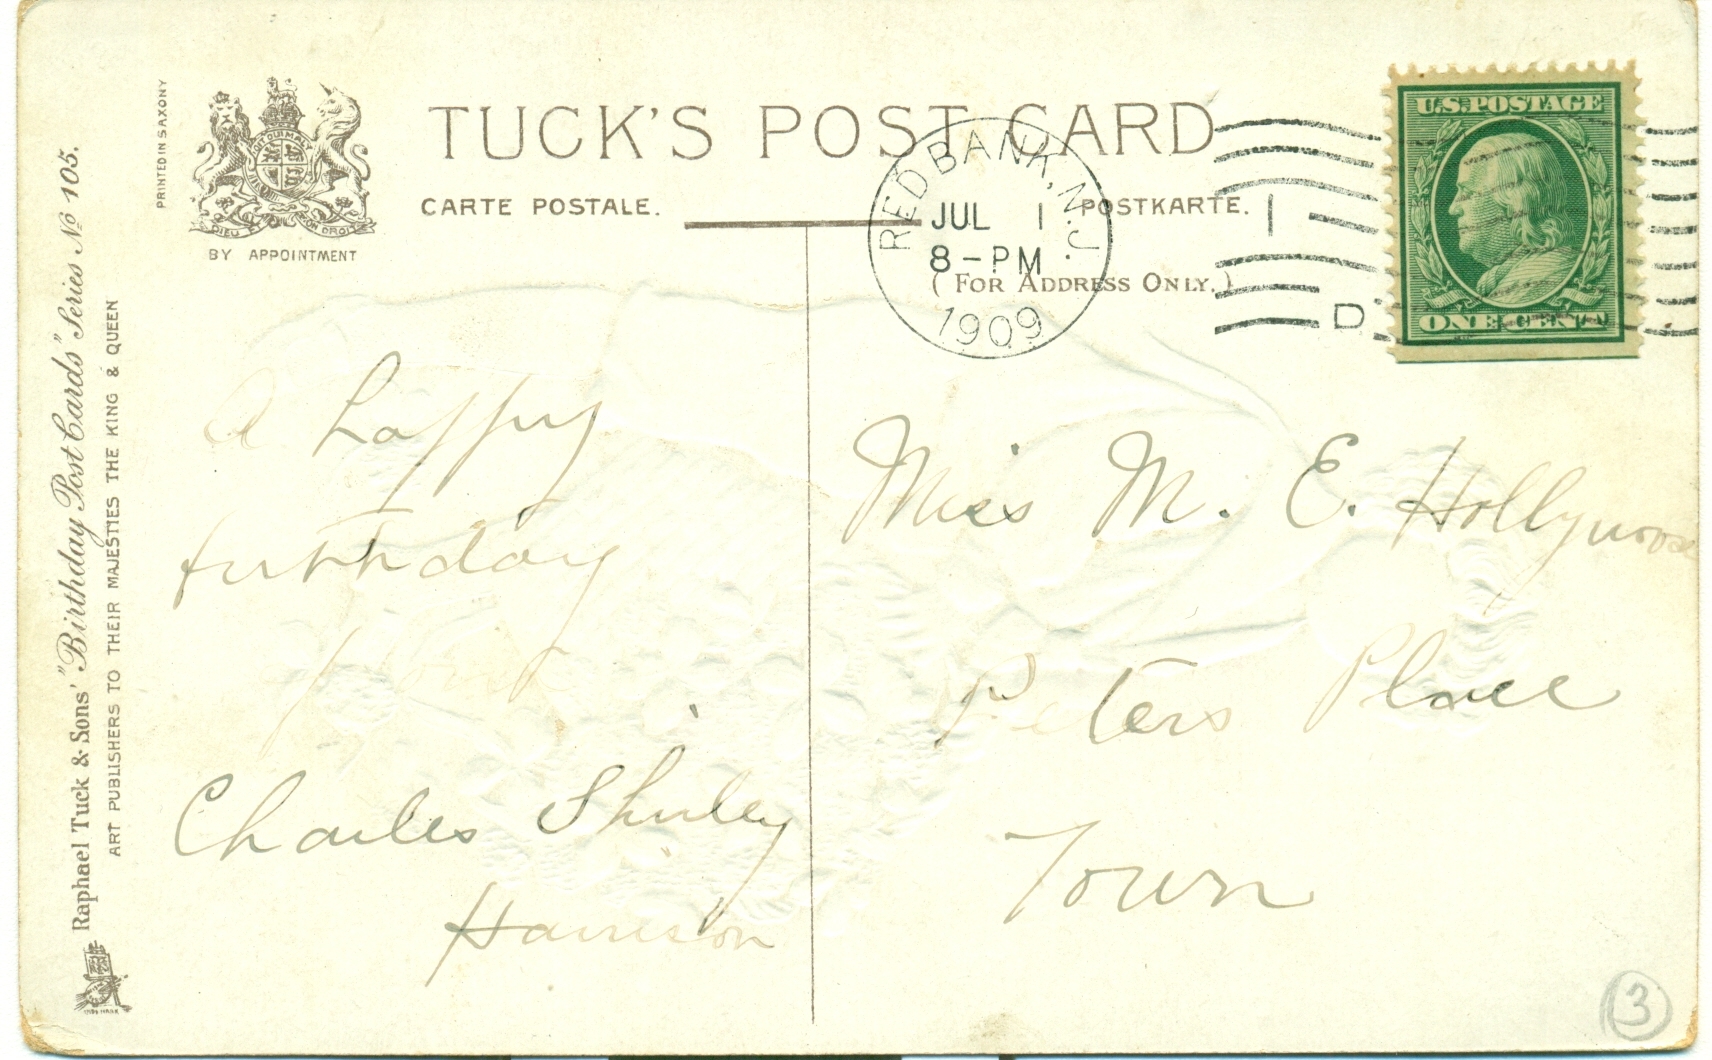 PRINTED IN SAXONY
DIEU ET MON DROIT
BY APPOINTMENT
TUCK'S POST CARD
CARTE POSTALE.
POSTKARTE.
(FOR ADDRESS ONLY.)
RED BANK, N.J.
JUL 1
8-PM
1909
1
D
U.S. POSTAGE
ONE CENT
Raphael Tuck & Sons' "Birthday Post Cards" Series No 105.
ART PUBLISHERS TO THEIR MAJESTIES THE KING & QUEEN
TRADE MARK
A happy
birthday
from
Charles Shirley
Harrison
Miss M. E. Hollywood
Peters Place
Town
3